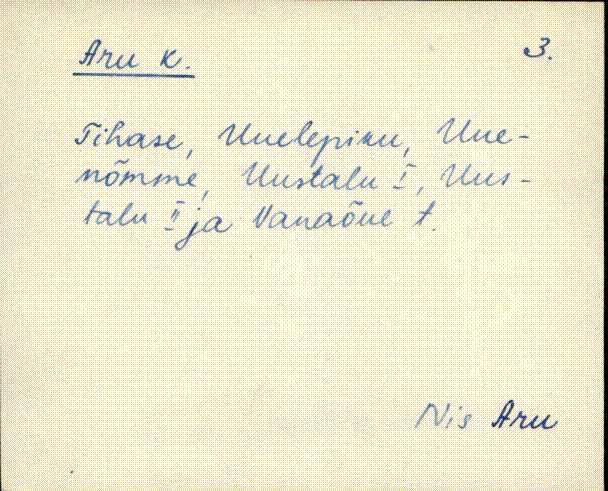 Aru k.
3.
Tihase, Uuelepiku, Uue-
nõmme, Uustalu I, Uus-
talu II ja Vanaõue t.
Nis Aru